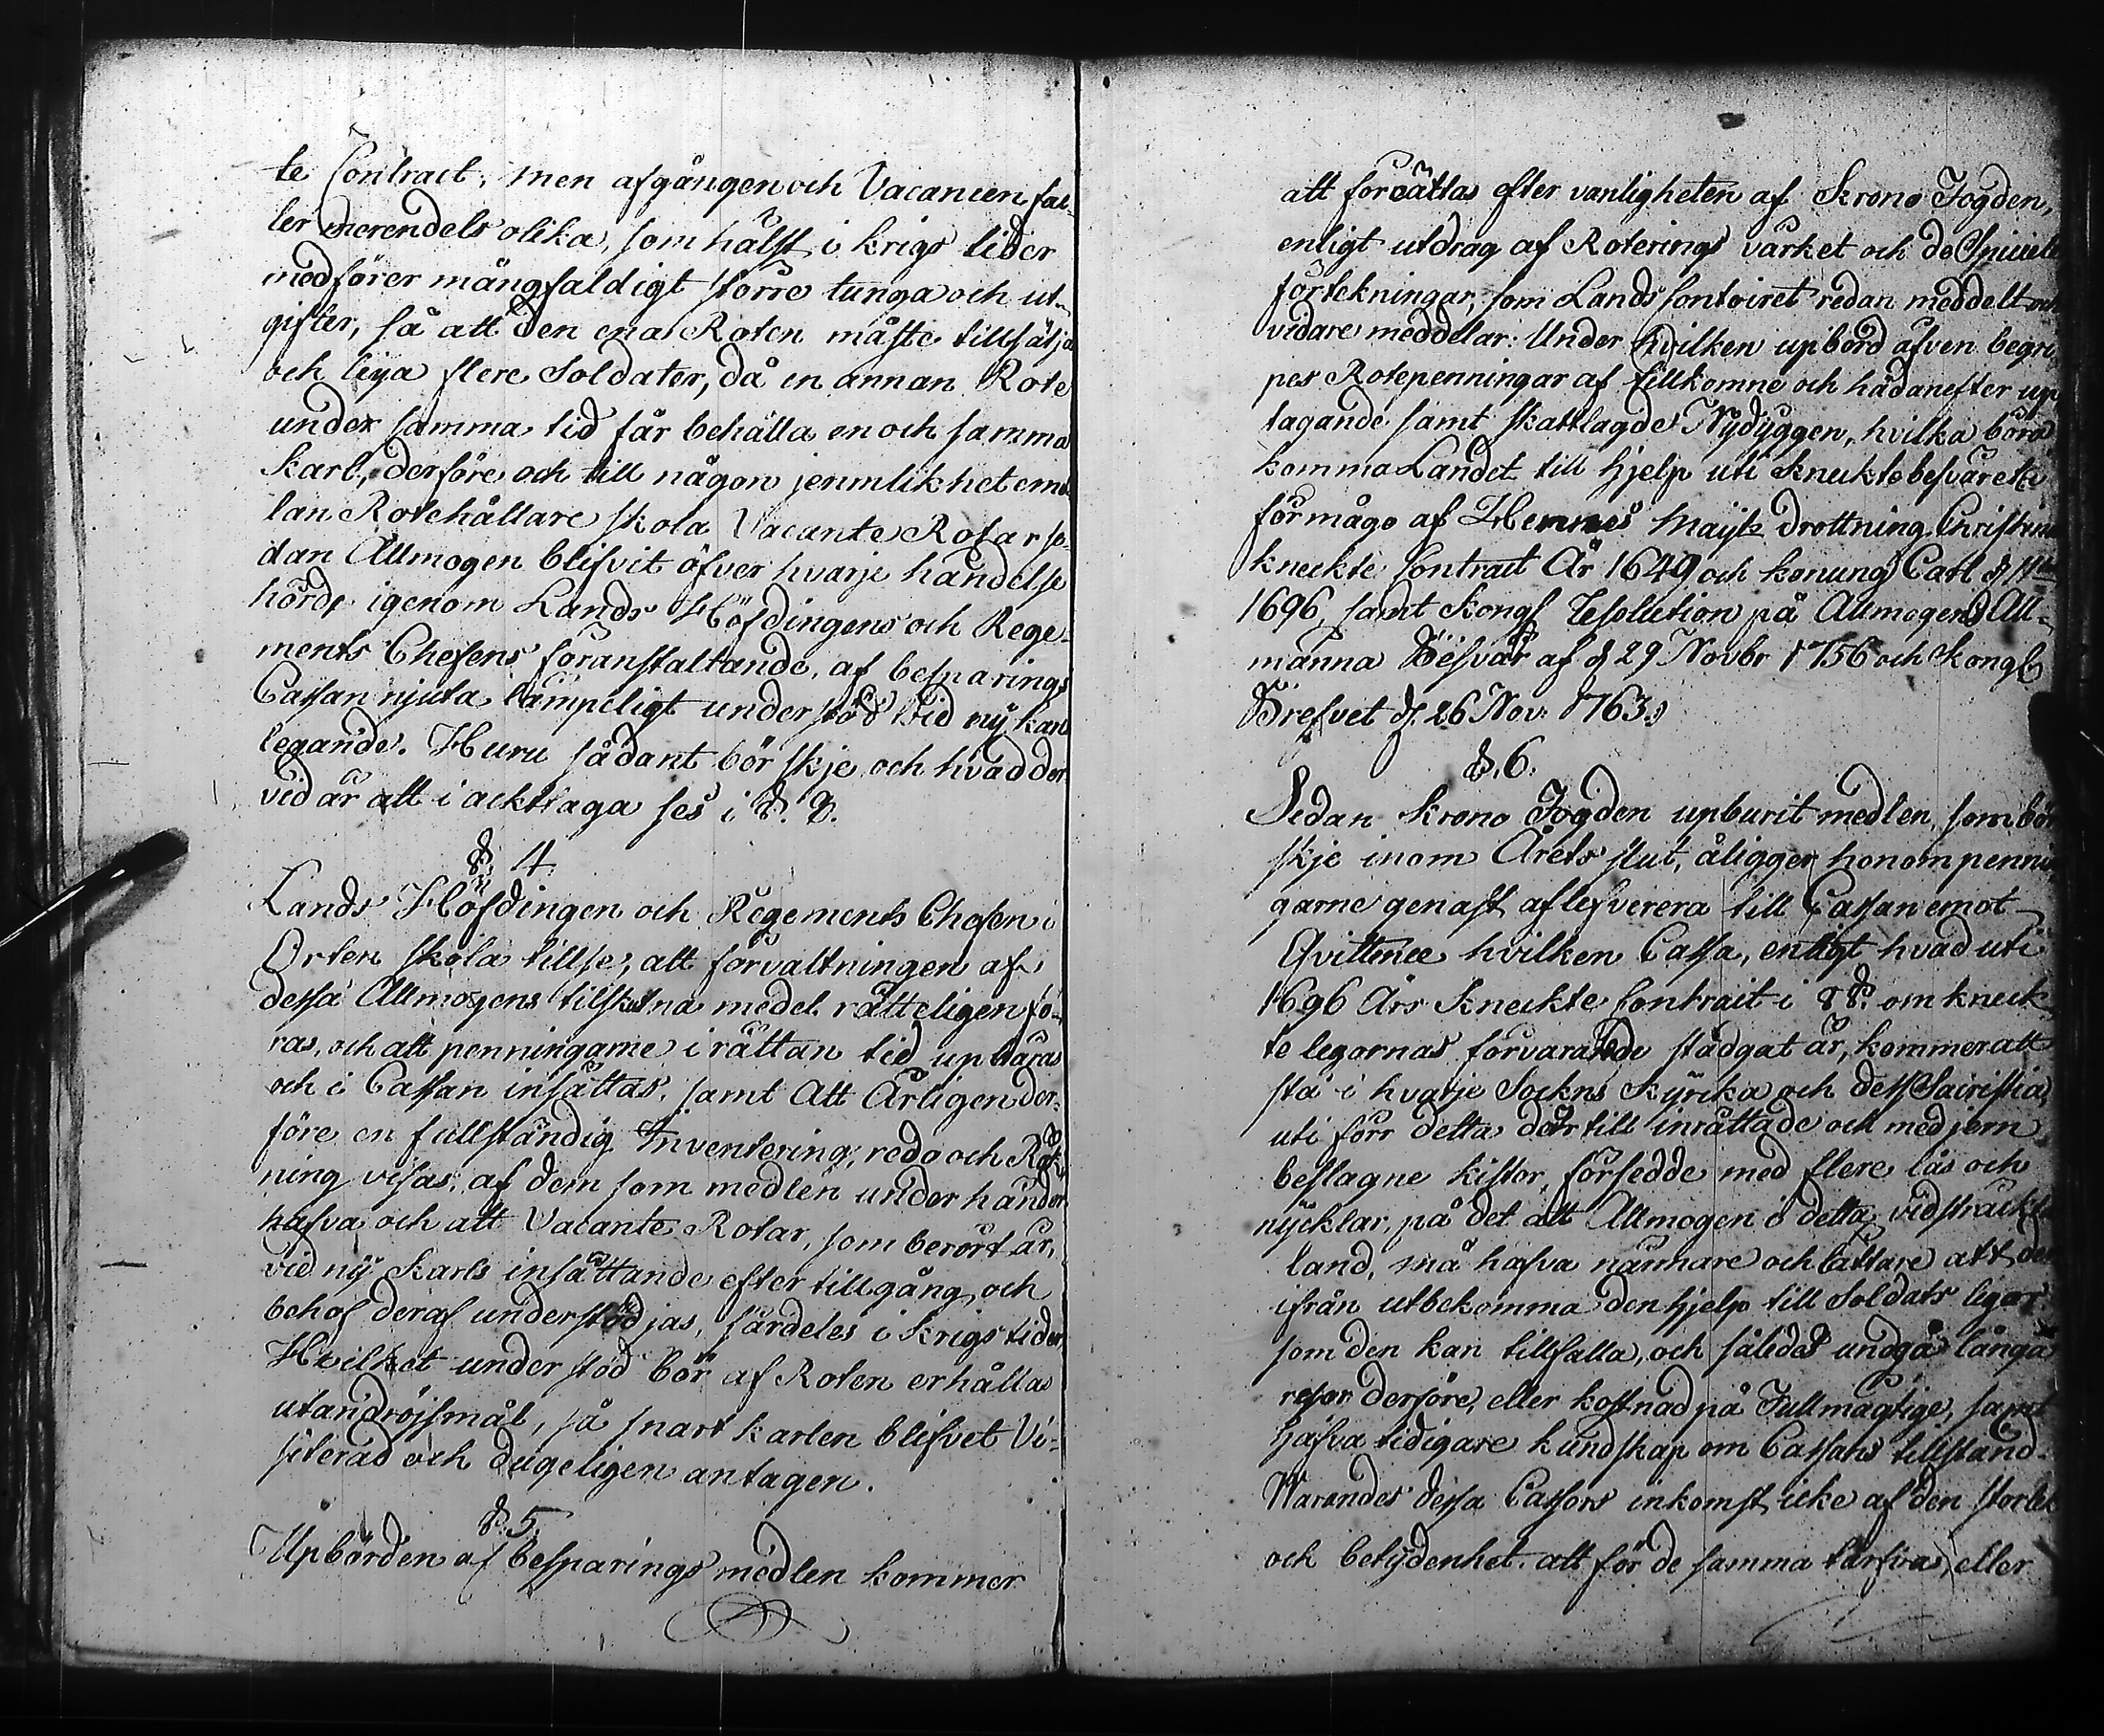 te Contract, men afgången och Vacancen fal-
ler merendels olika, som hälst i krigs tider
medförer mångfaldigt större tunga och ut-
gifter, så att den ena Roten måste tillsätja
och leija flere Soldater, då en annan Rote
under samma tid får behålla en och samma
Karl, derföre och till någon jemnlikhet emel
lan Rotehållare skola Vacante Rotar se-
dan Allmogen blifvit öfver hvarje händelse
hörde igenom Lands Höfdingens och Rege-
ments Chefens föranstaltande, af besparings
Cassan njuta lämpeligt understöd vid ny karl
legande. Huru sådant bör skje och hvad der
vid är att i acktaga ses i §. 8.
§. 4.
Lands Höfdingen och Regements Chefen i
Orten skola tillse, att förvaltningen af
dessa Allmogens tilskutna medel rätteligen fö-
ras, och att penningarne i rättan tid upbäras
och i Cassan insättas, samt Att Årligen der-
före en fullständig Inventering, redo och Räk-
ning visas, af dem som medlen under händer
hafva och att Vacante Rotar, som berört är,
vid ny Karls insättande efter tillgång och
behof deraf understödjas, särdeles i krigs tider
Hvilket understöd bör af Roten erhållas
utan dröjsmål, så snart karlen blifvet Vi-
siterad och dugeligen antagen.
§. 5.
Upbörden af besparings medlen kommer
att försättas efter vanligheten af Krono Fogden,
enligt utdrag af Roterings värket och de Speciele
förtekningar, som Lands Contoiret redan meddelt och
vidare meddelar: Under hvilken upbörd äfven begri
pes Rotepenningar af tillkomne och hädanefter up
tagande samt skattlagde Nybyggen, hvilka böra
komma Landet till hjelp uti Kneckte besväret i
förmågo af Hennes Maijts Drottning Christine
kneckte Contract År 1649 och konung Carl d 11te
1696, samt Kongl Resolution på Allmogens All-
männa Besvär af d 29 Novbr 1756 och Kongl
Brefvet d. 26 Nov: 1763.
§. 6.
Sedan Krono Fogden upburit medlen, som bör
skje inom Årets slut, åligger honom pennin
garne genast aflefverera till Cassan emot
Qvittence hvilken Cassa, enligt hvad uti
1696 Års Kneckte Contract i 8 §. om kneck
te legornas förvarande stadgat är, kommer att
stå i hvarje Sockns Kyrcka och dess Sacristia,
uti förr detta dertill inrättade och med jern
beslagne kistor, försedde med flere lås och
nycklar, på det att Allmogen i detta vidsträckte
land, må hafva närmare och lättare att der
ifrån utbekomma den hjelp till Soldats legor
som den kan tillfalla, och således undgå långa
resor derföre, eller kostnad på Fullmägtige, samt
hafva tidigare kundskap om Cassans tillstånd.
Warandes dessa Cassors inkomst icke af den storlek
och betydenhet att för de samma tarfvas, eller